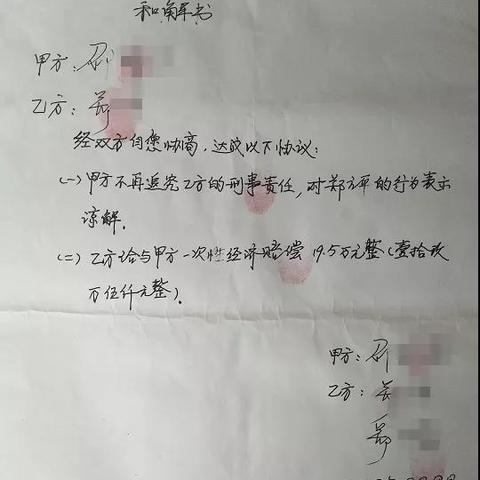 和解书
甲方：
乙方：
经双方自愿协商，达成以下协议：
(一) 甲方不再追究乙方的刑事责任，对郑方平的行为表示
谅解。
(二) 乙方给与甲方一次性经济赔偿 19.5万元整(壹拾玖
万伍仟元整)。
甲方：
乙方：